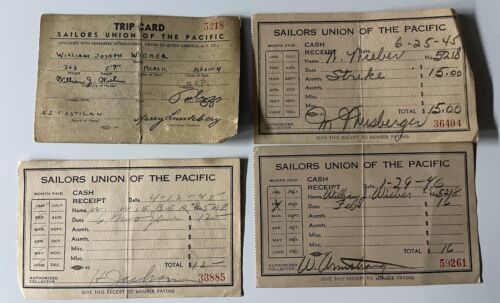 TRIP CARD 5218
SAILORS UNION OF THE PACIFIC
AFFILIATED WITH SEAFARERS INTERNATIONAL UNION OF NORTH AMERICA, A. F. OF L.
WILLIAM JOSEPH WIEBER
203 5'9" BLACK BROWN
Weight Height
William J. Wieber
J.S. COSTIGAN Harry Lundeberg
SAILORS UNION OF THE PACIFIC
MONTH PAID CASH RECEIPT Date 6-25-45
JAN. JULY Name W. Wieber No. 5218
FEB. AUG. Dues Strike 15.00
MAR. SEPT. Asmts.
APR. OCT. Asmts.
MAY NOV. Misc.
JUNE DEC. Misc.
TOTAL $ 15.00
AUTHORIZED COLLECTOR 36404
GIVE THIS RECEIPT TO MEMBER PAYING
SAILORS UNION OF THE PACIFIC
MONTH PAID CASH RECEIPT Date 4-12-45
JAN. JULY Name W. WIEBER No. 5218
FEB. AUG. Dues 6 12
MAR. SEPT. Asmts.
APR. OCT. Asmts.
MAY NOV. Misc.
JUNE DEC. Misc.
TOTAL 12
AUTHORIZED COLLECTOR 33885
GIVE THIS RECEIPT TO MEMBER PAYING
SAILORS UNION OF THE PACIFIC
MONTH PAID CASH RECEIPT Date 1-29-46
JAN. JULY Name William Wieber No. 5218
X AUG. Dues Feb 16
MAR. SEPT. Asmts.
APR. OCT. Asmts.
MAY NOV. Misc.
JUNE DEC. Misc.
TOTAL 16
AUTHORIZED COLLECTOR W. Armstrong 59261
GIVE THIS RECEIPT TO MEMBER PAYING